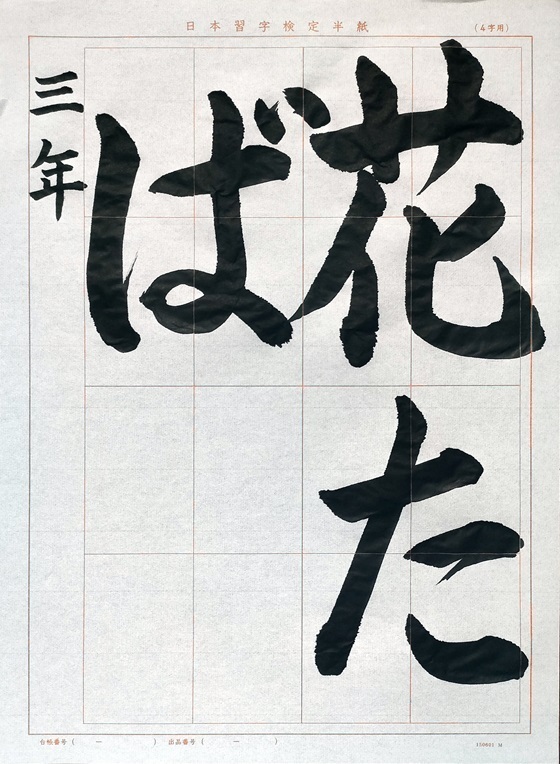 日本習字検定半紙
(4字用)
花た
ば
三年
台帳番号 ( － ) 出品番号 ( － )